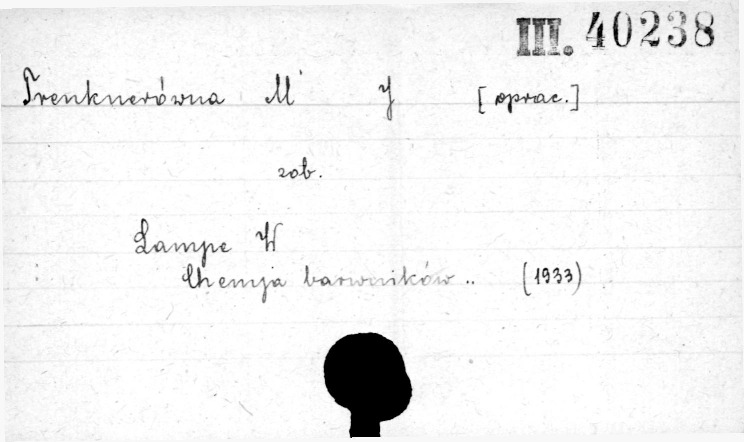 III. 40238
Trenknerówna M J [oprac.]
zob.
Lampe W
Chemja barwników .. (1933)